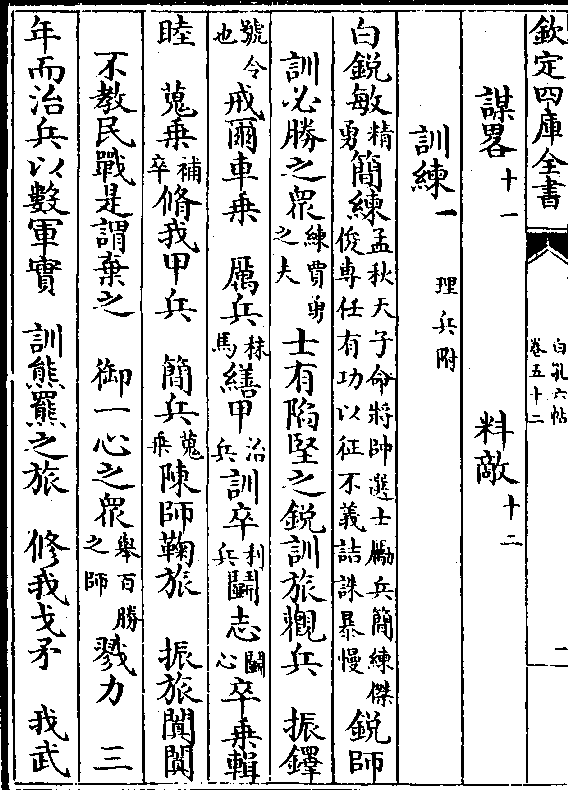 欽定四庫全書
白孔六帖
卷五十二
一
謀畧十一　料敵十二
訓練一 理兵附
白銳敏精勇簡練孟秋天子命將帥選士勵兵簡練傑俊專任有功以征不義詰誅暴慢銳師
訓必勝之眾練賈勇之夫士有陷堅之銳訓旅觀兵　振鐸
號令也戒爾車乗　厲兵秣馬繕甲治兵訓卒利兵鬭志鬭心卒乗輯
睦　蒐乗補卒脩我甲兵　簡兵蒐乗陳師鞠旅　振旅闐闐
不教民戰是謂棄之　御一心之衆舉百勝之師戮力　三
年而治兵以數軍實　訓熊羆之旅　修我戈矛　我武